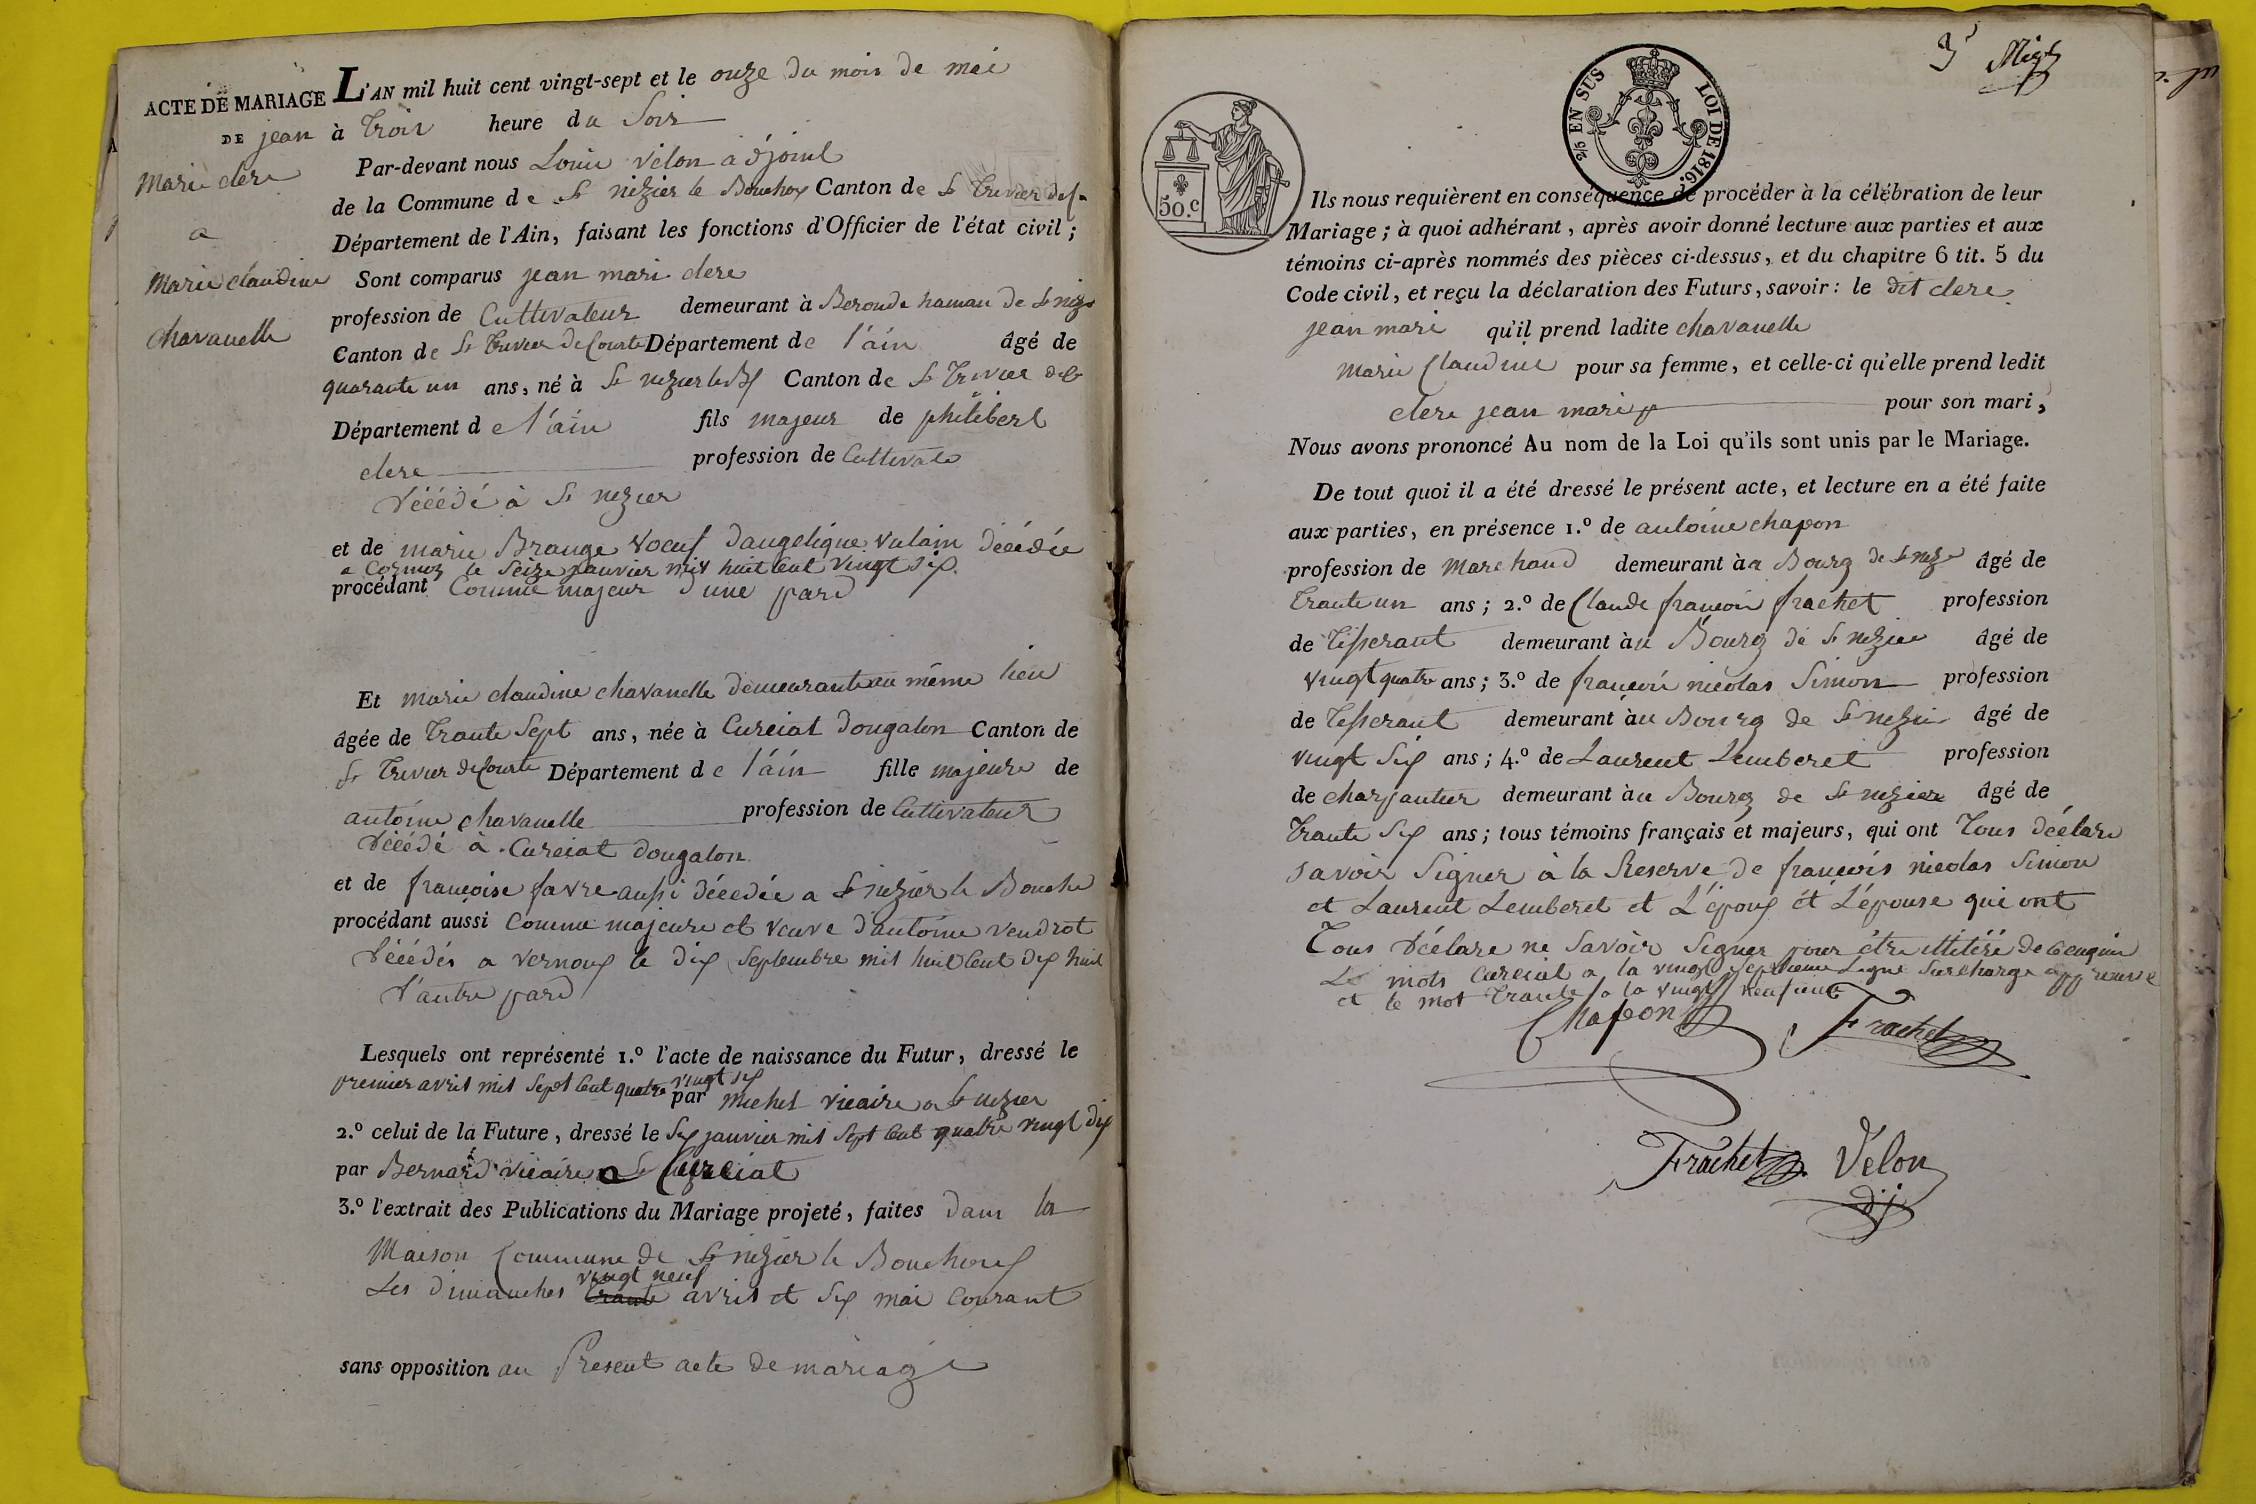 ACTE DE MARIAGE
DE jean
Marie clere
a
Marie claudine
chavanelle
L'AN mil huit cent vingt-sept et le onze du mois de mai
à trois heure du Soir
Par-devant nous Louis Vélon adjoint
de la Commune de St nizier le Bouchoux Canton de St Trivier de C.
Département de l'Ain, faisant les fonctions d'Officier de l'état civil;
Sont comparus jean mari clere
profession de Cultivateur demeurant à Beronde hamau de St niz
Canton de St Trivier de Courte Département de l'ain âgé de
quarante un ans, né à St nizier le B Canton de St Trivier de C
Département de l'ain fils majeur de philibert
clere profession de Cultivate
décédé à St nizier
et de marie Brange voeuf dangelique vulain décédée
a Cormoz le Seize janvier mil huit Cent vingt six
procédant Comme majeur d'une pard
Et marie claudine chavanelle demeurante au même lieu
âgée de trante Sept ans, née à Curciat dougalon Canton de
St Trivier de Courte Département de l'ain fille majeure de
antoine chavanelle profession de Cultivateur
décédé à Curciat dougalon
et de françoise favre aussi décédée a St nizier le Bouche
procédant aussi Comme majeure et veuve d'antoine vendrot
décédés a vernoux le dix Septembre mil huit Cent dix huit
d'autre pard
Lesquels ont représenté 1.º l'acte de naissance du Futur, dressé le
premier avril mil Sept Cent quatre vingt six
par michel vicaire a St nizier
2.º celui de la Future, dressé le Six janvier mil Sept Cent quatre vingt dix
par Bernard vicaire a Curciat
3.º l'extrait des Publications du Mariage projeté, faites dans la
Maison Commune de St nizier le Bouchoux
Les dimanches trante vingt neuf avril et Six mai Courant
sans opposition au Présent acte de mariage
3
50.c
2/5 EN SUS LOI DE 1816.
Ils nous requièrent en conséquence de procéder à la célébration de leur
Mariage; à quoi adhérant, après avoir donné lecture aux parties et aux
témoins ci-après nommés des pièces ci-dessus, et du chapitre 6 tit. 5 du
Code civil, et reçu la déclaration des Futurs, savoir: le dit clere
jean mari qu'il prend ladite chavanelle
Marie Claudine pour sa femme, et celle-ci qu'elle prend ledit
clere jean mari pour son mari,
Nous avons prononcé Au nom de la Loi qu'ils sont unis par le Mariage.
De tout quoi il a été dressé le présent acte, et lecture en a été faite
aux parties, en présence 1.º de antoine chapon
profession de Marchand demeurant à au Bourg de St niz âgé de
trante un ans; 2.º de Claude françois frachet profession
de tisserant demeurant àu Bourg de St nizier âgé de
vingt quatre ans; 3.º de françois nicolas Simon profession
de tisserant demeurant àu Bourg de St nizier âgé de
vingt Six ans; 4.º de Laurent Lemberet profession
de charpantier demeurant àu Bourg de St nizier âgé de
trante Six ans; tous témoins français et majeurs, qui ont tous déclare
savoir Signer à la Reserve de françois nicolas Simon
et Laurent Lemberet et L'époux ét L'épouse qui ont
tous déclare ne Savoir Signer pour être illitéré de ce enquis
Les mots Curciat a la vingt septieme Ligne Surcharge approuvé
et le mot trante a la vingt neufieme
Chapon Frachet
Frachet Vélon
dj